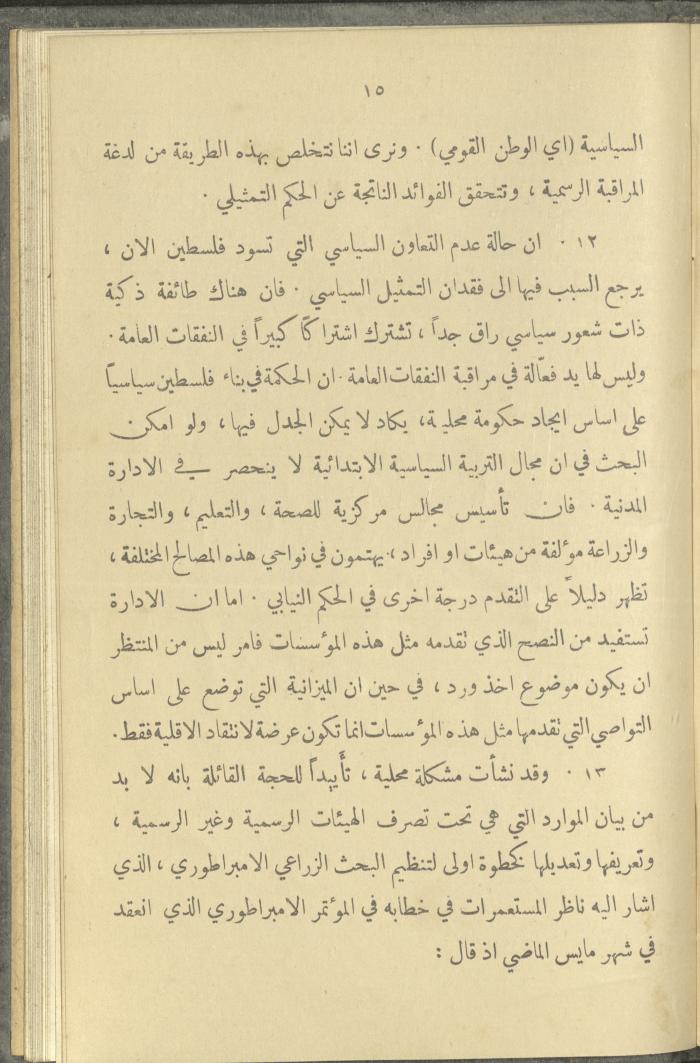 ١٥
السياسية (اي الوطن القومي) . ونرى اننا نتخلص بهذه الطريقة من لدغة
المراقبة الرسمية ، وتتحقق الفوائد الناتجة عن الحكم التمثيلي .
١٢ . ان حالة عدم التعاون السياسي التي تسود فلسطين الان ،
يرجع السبب فيها الى فقدان التمثيل السياسي . فان هناك طائفة ذكية
ذات شعور سياسي راق جداً ، تشترك اشتراكاً كبيراً في النفقات العامة .
وليس لها يد فعّالة في مراقبة النفقات العامة . ان الحكمة في بناء فلسطين سياسياً
على اساس ايجاد حكومة محلية ، يكاد لا يمكن الجدل فيها ، ولو امكن
البحث في ان مجال التربية السياسية الابتدائية لا ينحصر في الادارة
المدنية . فان تأسيس مجالس مركزية للصحة ، والتعليم ، والتجارة
والزراعة مؤلفة من هيئات او افراد ، يهتمون في نواحي هذه المصالح المختلفة ،
تظهر دليلاً على التقدم درجة اخرى في الحكم النيابي . اما ان الادارة
تستفيد من النصح الذي تقدمه مثل هذه المؤسسات فامر ليس من المنتظر
ان يكون موضوع اخذ ورد ، في حين ان الميزانية التي توضع على اساس
التواصي التي تقدمها مثل هذه المؤسسات انما تكون عرضة لانتقاد الاقلية فقط .
١٣ . وقد نشأت مشكلة محلية ، تأييداً للحجة القائلة بانه لا بد
من بيان الموارد التي هي تحت تصرف الهيئات الرسمية وغير الرسمية ،
وتعريفها وتعديلها كخطوة اولى لتنظيم البحث الزراعي الامبراطوري ، الذي
اشار اليه ناظر المستعمرات في خطابه في المؤتمر الامبراطوري الذي انعقد
في شهر مايس الماضي اذ قال :